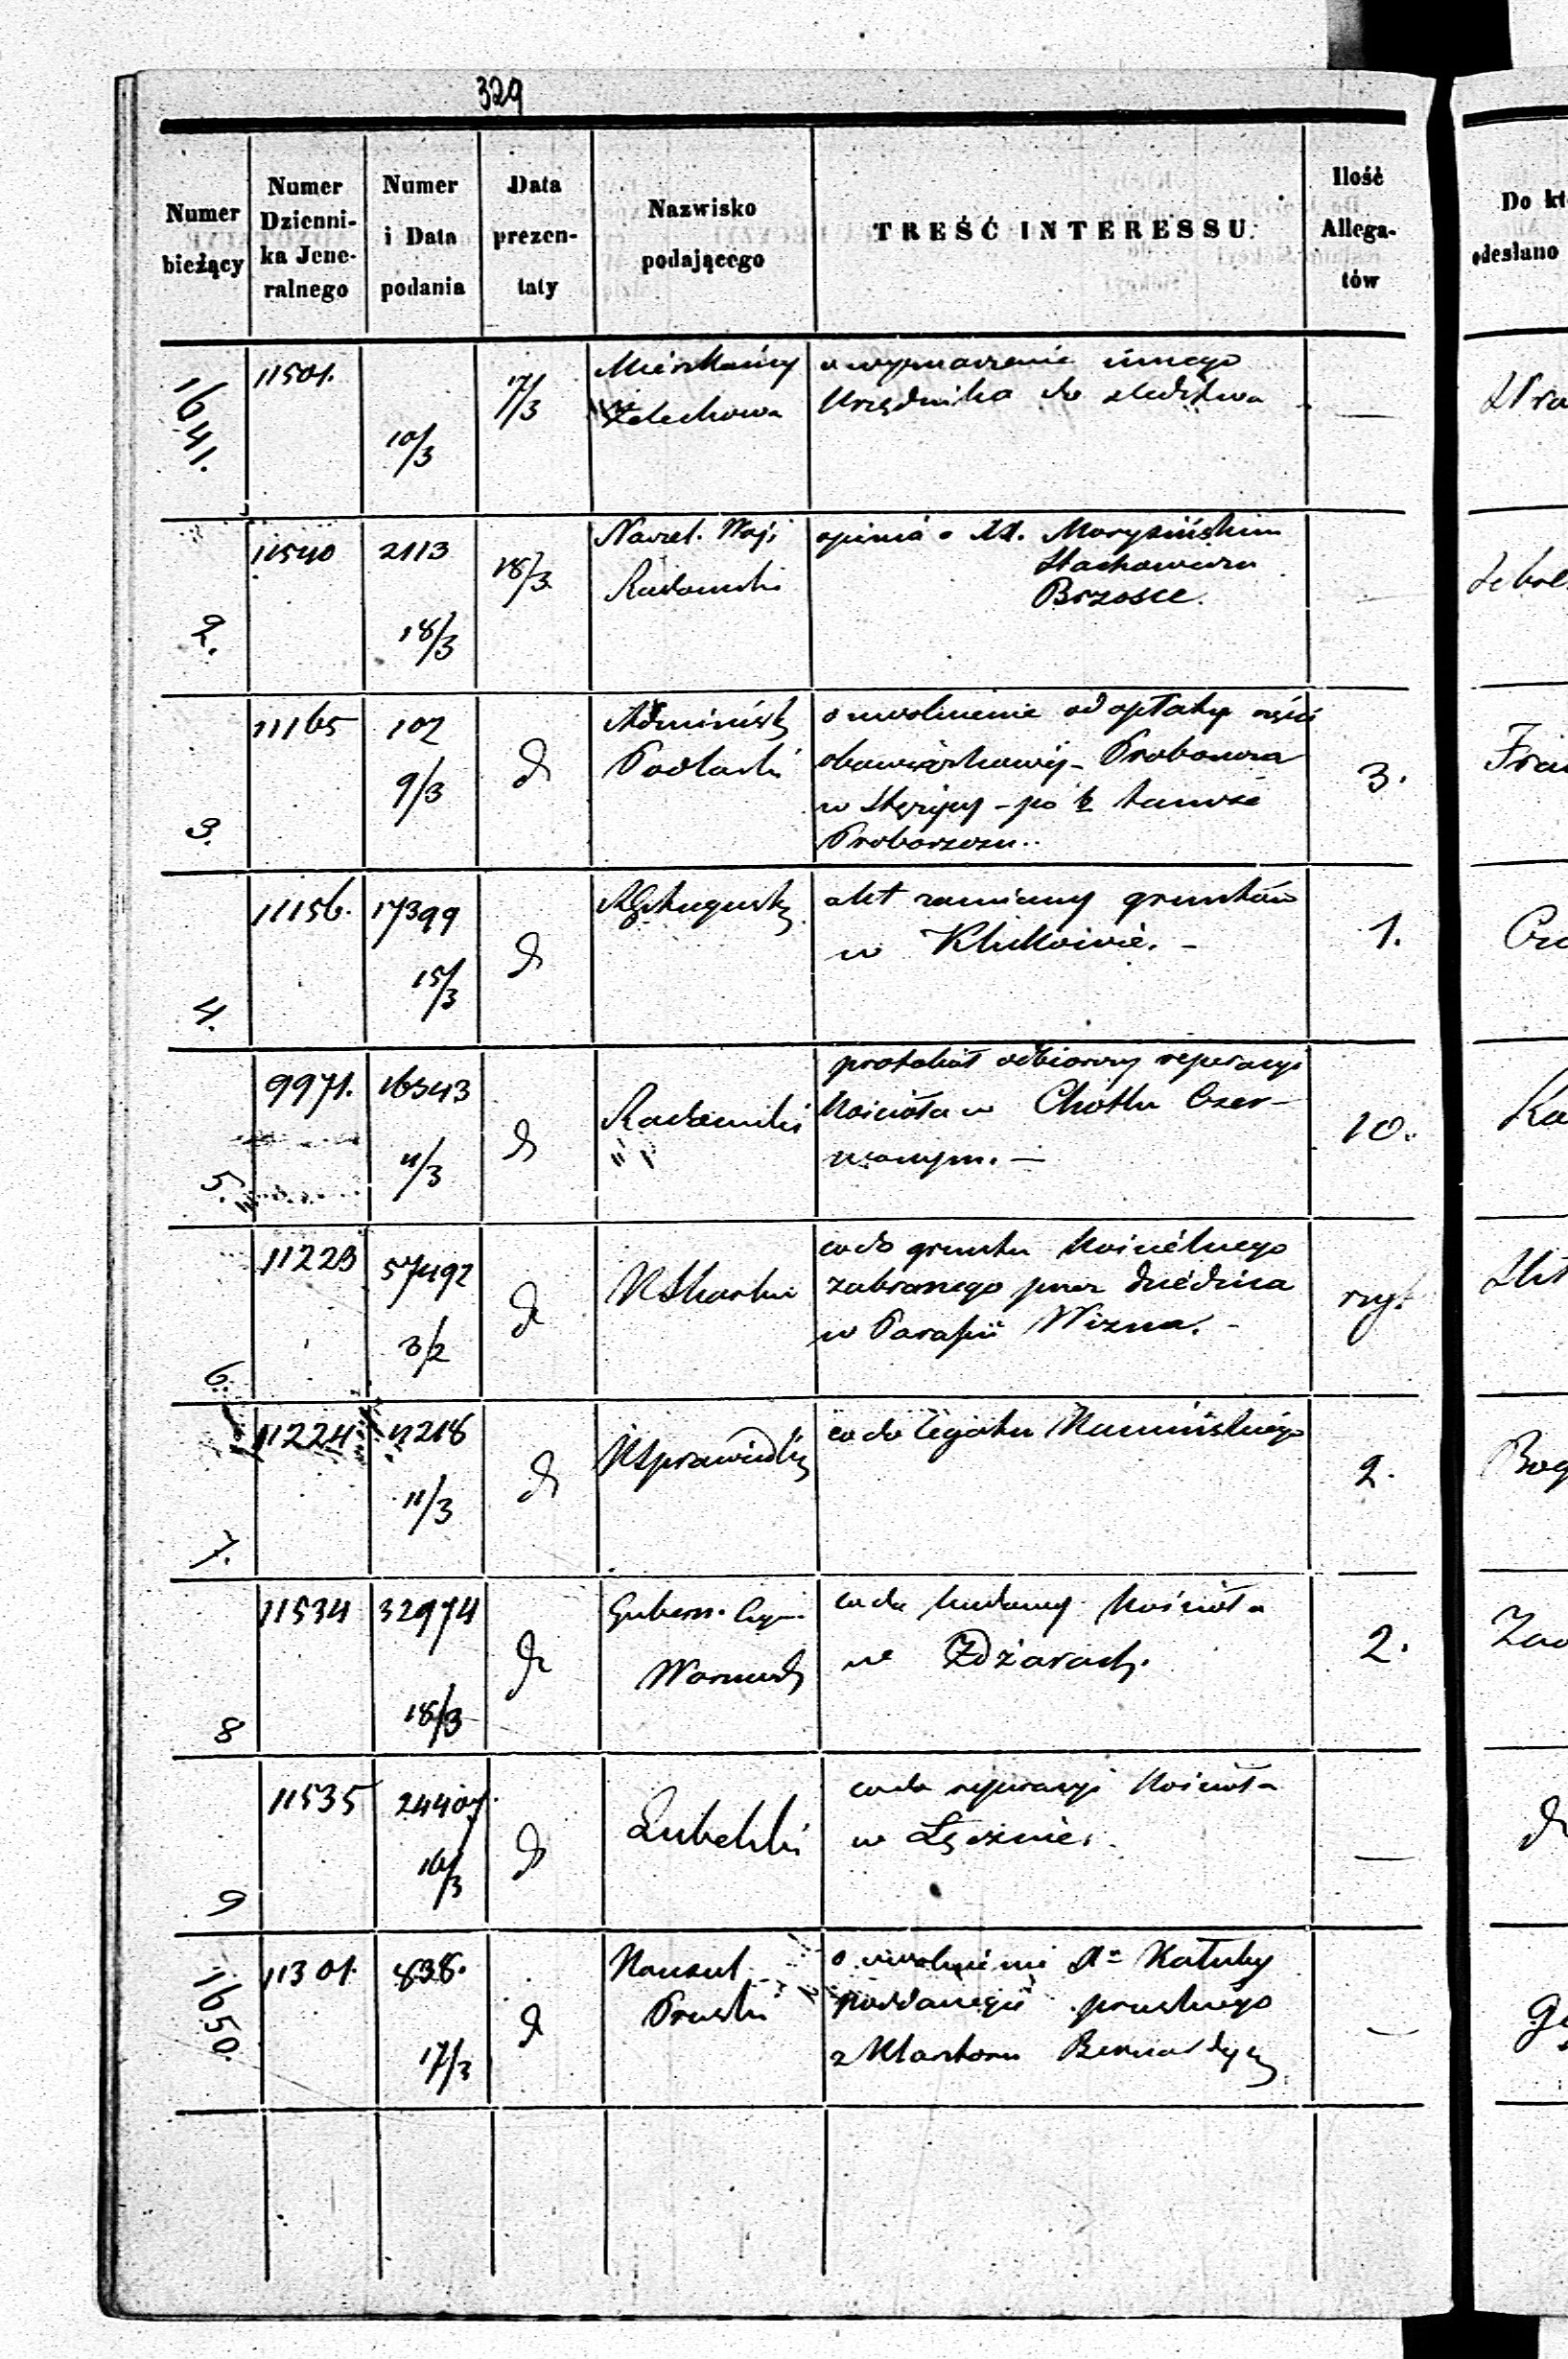 329
Numer bieżący
Numer Dzienni-ka Jene-ralnego
Numer i Data podania
Data prezen-taty
Nazwisko podającego
TREŚĆ INTERESSU.
Ilość Allega-tów
Do kt
odesłano
1641.
11501.
10/3
17/3
Mieszkańcy
Żelechowa
o wyznaczenie innego
Urzędnika do śledztwa
—
2.
11540
2113
18/3
18/3
Naczel. Woj.
Radomski
opinia o XX. Morysińskim
Stachowiczu
Brzosce.
3.
11165
102
9/3
d
Administ
Podlaski
o uwolnienie od opłaty części
obowiązkowej - Proboszcza
w Stężycy - po tamże
Proboszczu..
3.
4.
11156.
17399
15/3
d
RGAugust
akt zamiany gruntów
w Klukowie. -
1.
5.
9971.
16343
11/3
d
Radomski
protokół odbiorczy reperacyi
Kościoła w Chotlu Czer-
wonym. —
10.
Ka
6.
11223
57492
3/2
d
KSkarbu
co do gruntu Kościelnego
zabranego przez dziedzica
w Parafii Wizna. -
7.
11224
11/3
d
KSprawiedli
co do legatu Kamińskiego
2.
Bog
8
11534
32974
18/3
d
Gubern. Cyw.
Warszaws
co do budowy Kościoła
we Zdżarach.
2.
9
11535
24407.
16/3
d
Lubelski
co do reperacyi Kościoła
w Łęcznie.
—
1650.
11301.
838.
17/3
d
Konsul
Pruski
o uwolnienie Xa Kałuby
poddanego pruskiego
z Klasztoru Bernardyn
—